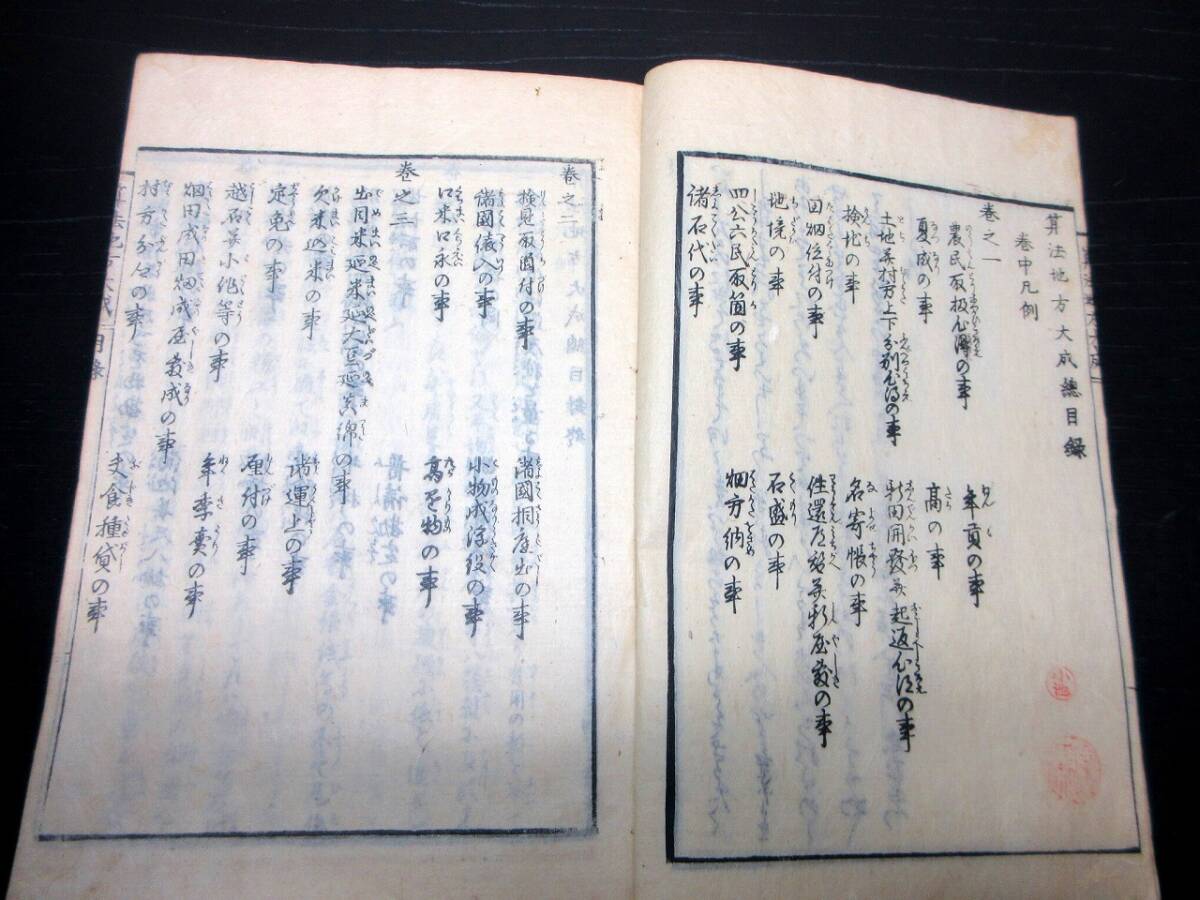 算法地方大成總目録
巻中凡例
巻之一
農民取扱心得の事
年貢の事
夏成の事
高の事
土地并村方上下分別心得の事
新田開發并起返心得の事
検地の事
名寄帳の事
田畑位付の事
往還屋敷并新屋敷の事
地境の事
石盛の事
四公六民取箇の事
畑方納の事
諸石代の事
巻之二
検見取箇付の事
諸國桝座出の事
諸國俵入の事
小物成浮役の事
口米口永の事
高不物の事
巻之三
出目米延米延大豆延真綿の事
諸運上の事
欠米込米の事
厘付の事
定免の事
年季賣の事
越石并小作等の事
夫食種貸の事
畑田成田畑成屋敷成の事
村方分ケの事
小池